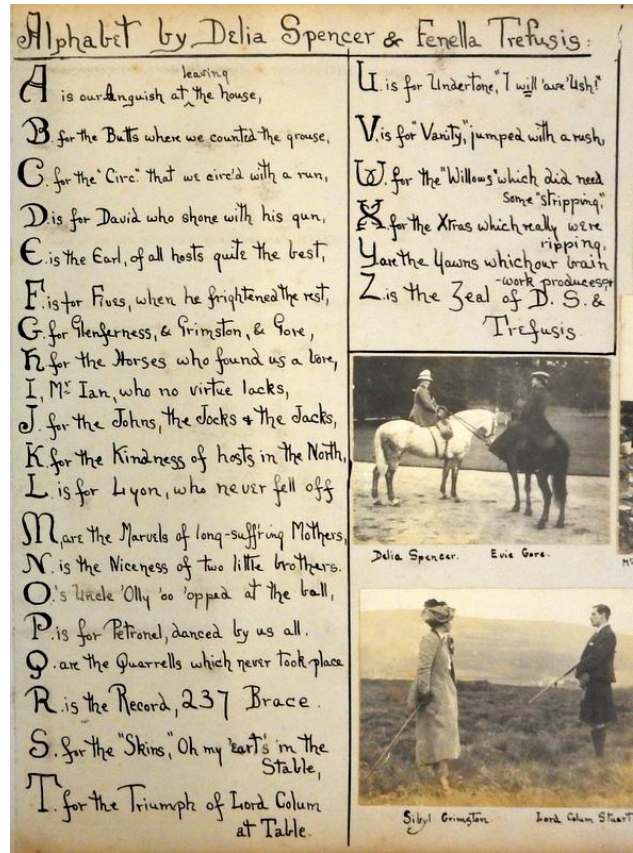 Alphabet by Delia Spencer & Fenella Trefusis:
A is our Anguish at leaving the house,
B. for the Butts where we counted the grouse,
C. for the "Circ." that we circ'd with a run,
D is for David who shone with his gun,
E. is the Earl, of all hosts quite the best,
F. is for Fives, when he frightened the rest,
G. for Glenferness, & Grimston, & Gore,
H for the Horses who found us a bore,
I, Mr. Ian, who no virtue lacks,
J. for the Johns, the Jocks & the Jacks,
K. for the Kindness of hosts in the North,
L. is for Lyon, who never fell off
M, are the Marvels of long-suff'ring Mothers,
N. is the Niceness of two little brothers.
O.'s Uncle 'Olly 'oo 'opped at the ball,
P. is for Petronel, danced by us all.
Q. are the Quarrells which never took place
R. is the Record, 237 Brace.
S. for the "Skins," Oh my 'eart's in the
Stable,
T. for the Triumph of Lord Colum
at Table.
U. is for Undertone, "I will 'ave 'Ush!"
V. is for "Vanity," jumped with a rush,
W. for the "Willows" which did need
some "stripping,"
X. for the Xtras which really were
ripping,
Y are the Yawns which our brain
-work produces, &
Z. is the Zeal of D. S. &
Trefusis.
Delia Spencer. Evie Gore.
Sibyl Grimston. Lord Colum Stuart